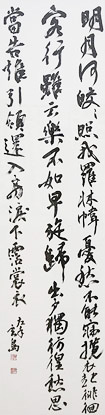 明月何皎々照我羅牀幃憂愁不能寐攬衣起徘徊
客行雖云樂不如早旋歸出戶獨彷徨愁思
當告誰引領還入房淚下霑裳衣